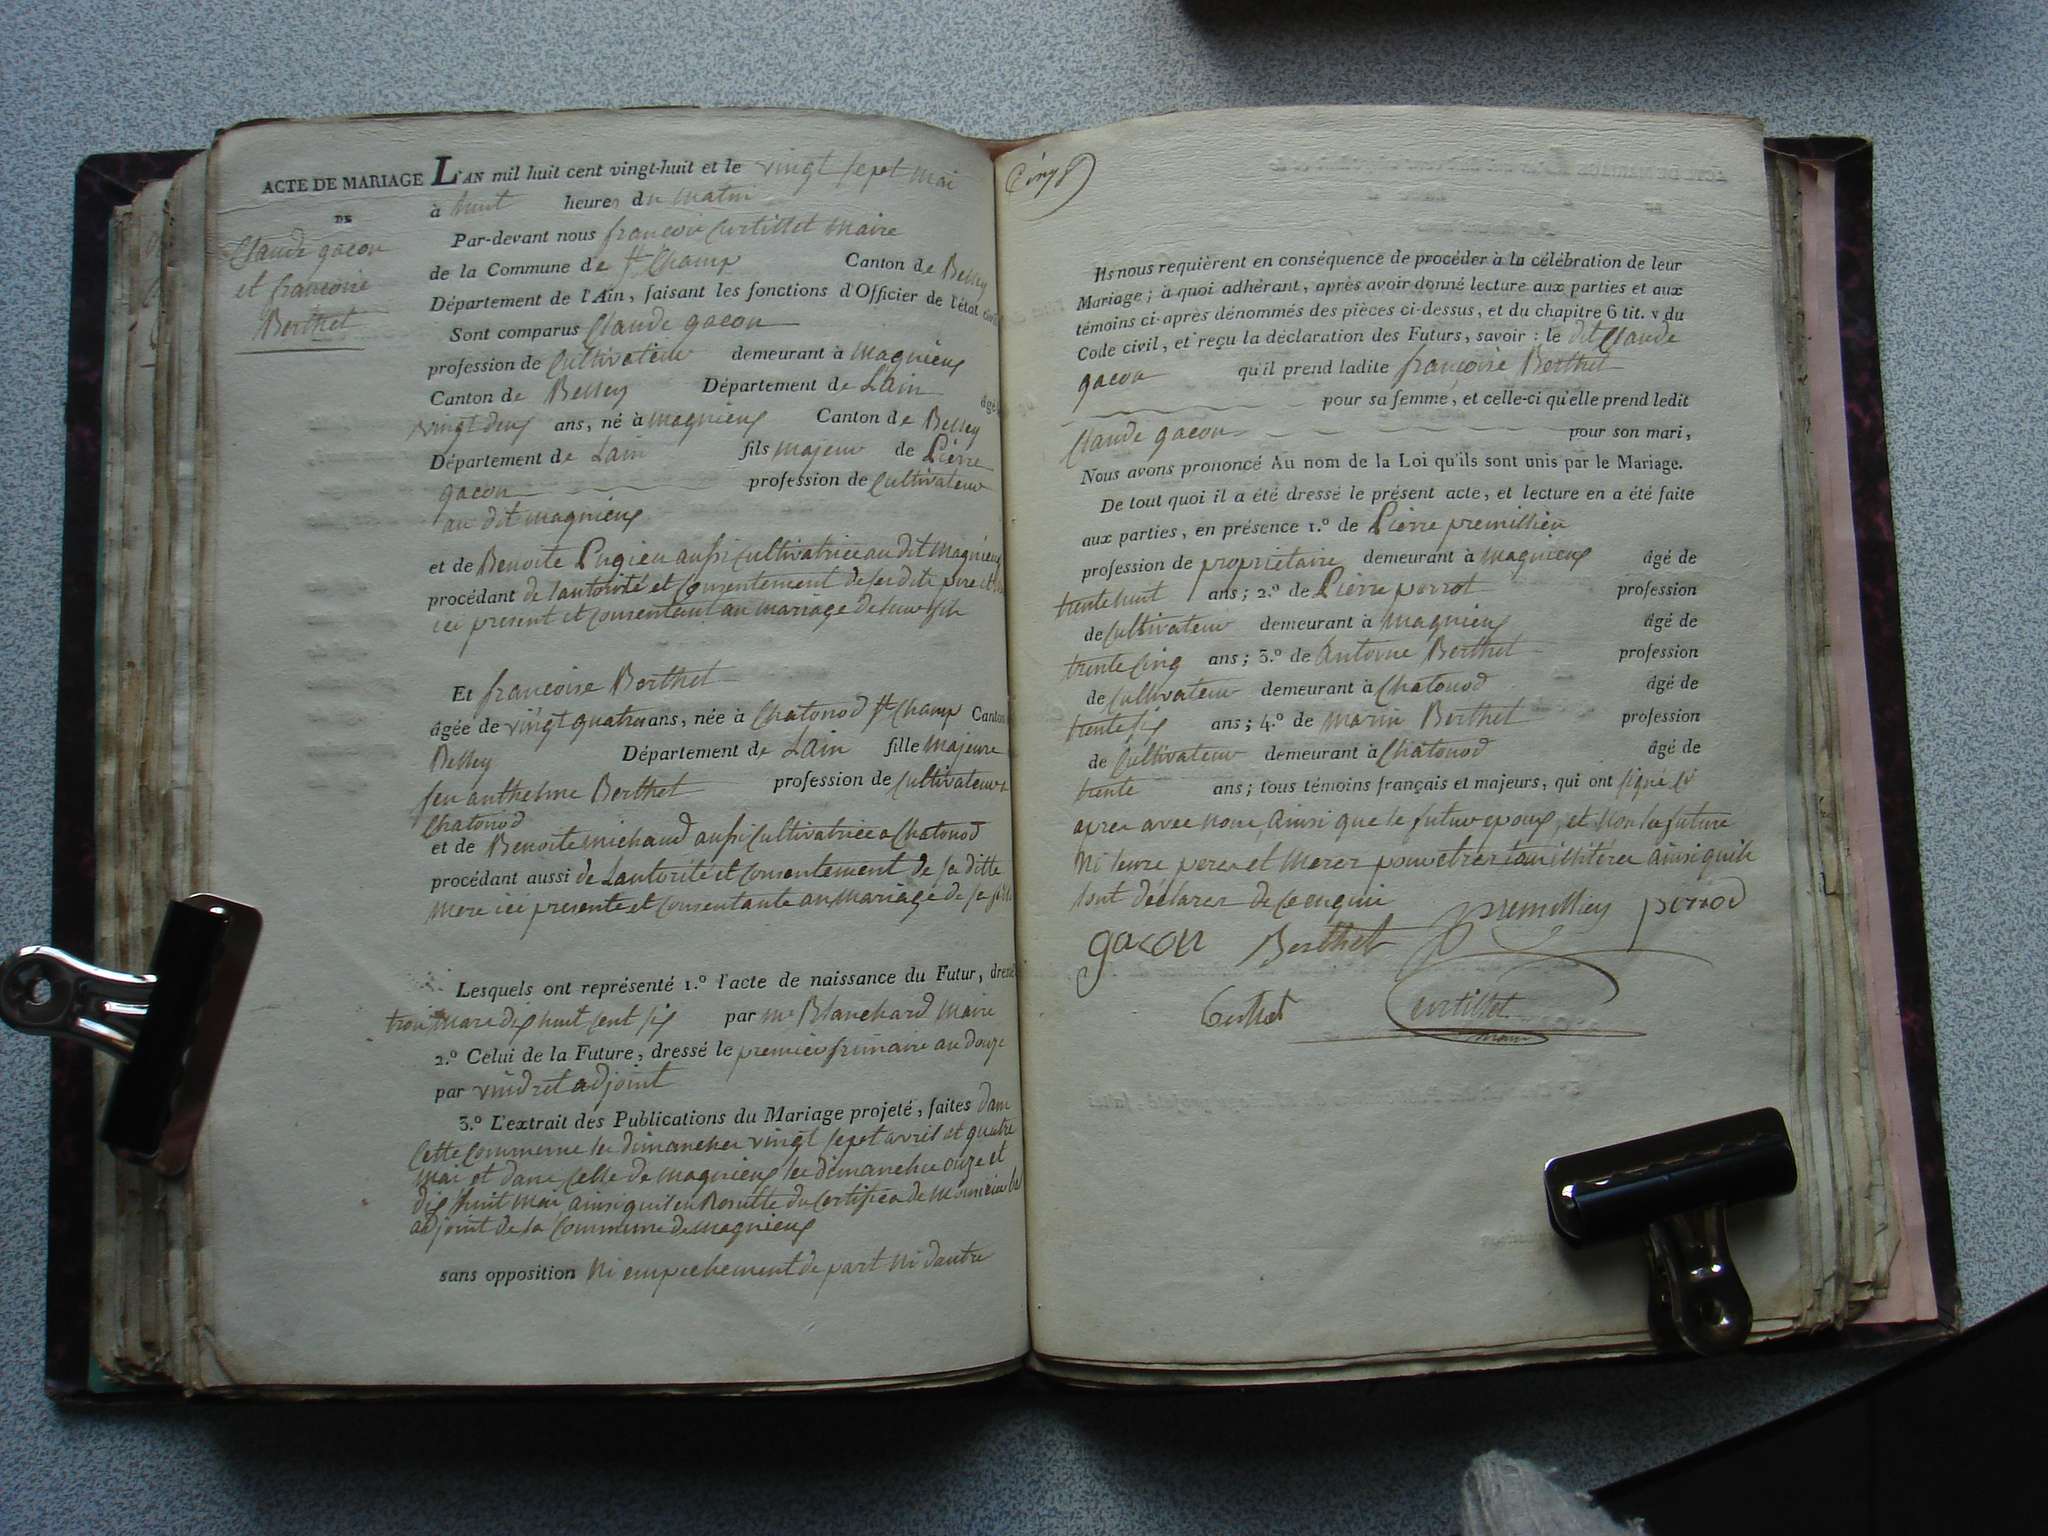 ACTE DE MARIAGE
DE
Claude gacon
et françoise
Berthet
L'AN mil huit cent vingt-huit et le vingt sept mai
à huit heures du matin
Par-devant nous françois Curtillet Maire
de la Commune de St Champ Canton de Belley
Département de l'Ain, faisant les fonctions d'Officier de l'état civil
Sont comparus Claude gacon
profession de Cultivateur demeurant à magnieux
Canton de Belley Département de Lain âgé
vingt deux ans, né à magnieux Canton de Belley
Département de Lain fils majeur de Pierre
gacon profession de Cultivateur
au dit magnieux
et de Benoite Pugieu aussi cultivatrice au dit Magnieux
procédant de lautorité et Consentement de ses dits pere et
ici present et Consentant au mariage de leur fils
Et françoise Berthet
âgée de vingt quatre ans, née à Chatonod St Champ Canton
Belley Département de Lain fille Majeure
feu anthelme Berthet profession de Cultivateur
Chatonod
et de Benoite michaud aussi Cultivatrice a Chatonod
procédant aussi de Lautorité et Consentement de sa ditte
Mere ici presente et Consentante au Mariage de sa fille
Lesquels ont représenté 1.º l'acte de naissance du Futur, dressé
trois mars dix huit cent six par mr Blanchard Maire
2.º Celui de la Future, dressé le premier frimaire an douze
par vindret adjoint
3.º L'extrait des Publications du Mariage projeté, faites dans
Cette Commune les dimanches vingt sept avril et quatre
Mai et dans Celle de Magnieux les dimanches onze et
dix huit Mai ainsi quil en Resulte du Certifica de Monsieur
adjoint de la Commune de Magnieux
sans opposition Ni empechement de part Ni dautre
Ils nous requièrent en conséquence de procéder à la célébration de leur
Mariage; à quoi adhérant, après avoir donné lecture aux parties et aux
témoins ci-après dénommés des pièces ci-dessus, et du chapitre 6 tit. v du
Code civil, et reçu la déclaration des Futurs, savoir: le dit Claude
gacon qu'il prend ladite françoise Berthet
pour sa femme, et celle-ci qu'elle prend ledit
Claude gacon pour son mari,
Nous avons prononcé Au nom de la Loi qu'ils sont unis par le Mariage.
De tout quoi il a été dressé le présent acte, et lecture en a été faite
aux parties, en présence 1.º de Pierre premillieu
profession de propriétaire demeurant à magnieux âgé de
trente huit ans; 2.º de Pierre perrot profession
de Cultivateur demeurant à Magnieux âgé de
trente Cinq ans; 3.º de Antoine Berthet profession
de Cultivateur demeurant à Chatonod âgé de
trente six ans; 4.º de marin Berthet profession
de Cultivateur demeurant à Chatonod âgé de
trente ans; tous témoins français et majeurs, qui ont signé ci
apres avec nous, ainsi que le futur epoux, et Non la future
Ni leurs peres et Meres pour etres tous illitérés ainsi quils
lont déclarés de Ce enquis
gacon Berthet premillieu perrod
Berthet Curtillet
maire